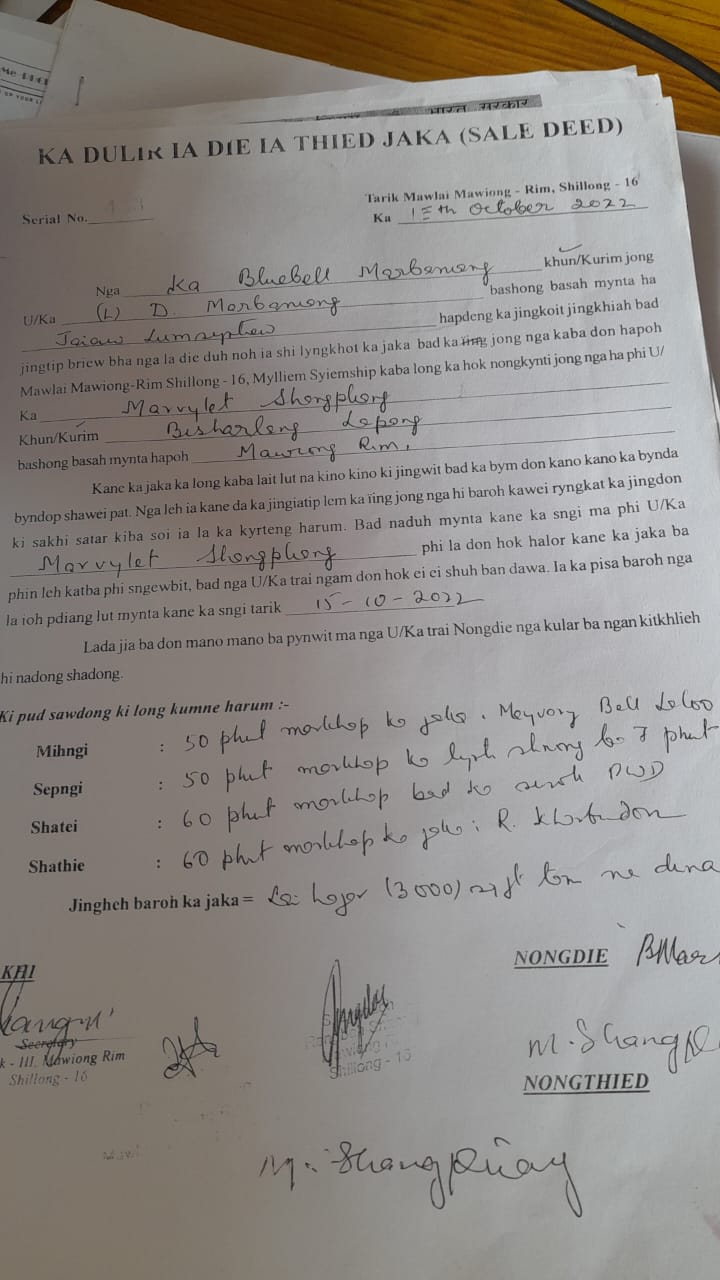 भारत सरकार
KA DULIR IA DIE IA THIED JAKA (SALE DEED)
Tarik Mawlai Mawiong - Rim, Shillong - 16
Serial No.
Ka 15th October 2022
Nga Ka Bluebell Marbaniang khun/Kurim jong
U/Ka (L) D. Marbaniang bashong basah mynta ha
Jaiaw Lumsyntiew hapdeng ka jingkoit jingkhiah bad
jingtip briew bha nga la die duh noh ia shi lyngkhot ka jaka bad ka ïing jong nga kaba don hapoh
Mawlai Mawiong-Rim Shillong - 16, Mylliem Syiemship kaba long ka hok nongkynti jong nga ha phi U/
Ka Marvylet Shongphong
Khun/Kurim Bisharleng Lapong
bashong basah mynta hapoh Mawiong Rim,
Kane ka jaka ka long kaba lait lut na kino kino ki jingwit bad ka bym don kano kano ka bynda
byndop shawei pat. Nga leh ia kane da ka jingiatip lem ka ïing jong nga hi baroh kawei ryngkat ka jingdon
ki sakhi satar kiba soi ia la ka kyrteng harum. Bad naduh mynta kane ka sngi ma phi U/Ka
Marvylet Shongphong phi la don hok halor kane ka jaka ba
phin leh katba phi sngewbit, bad nga U/Ka trai ngam don hok ei ei shuh ban dawa. Ia ka pisa baroh nga
la ioh pdiang lut mynta kane ka sngi tarik 15-10-2022
Lada jia ba don mano mano ba pynwit ma nga U/Ka trai Nongdie nga kular ba ngan kitkhlieh
hi nadong shadong.
Ki pud sawdong ki long kumne harum :-
Mihngi : 50 phut markhap ka jaka. Meyvory Bell
Sepngi : 50 phut markhap ka lynti shnong ba 7 phut
Shatei : 60 phut markhap bad ka surok PWD
Shathie : 60 phut markhap ka jaka : R. Kharbudon
Jingheh baroh ka jaka = Lai hajar (3000) sq ft lane ne duna
KHI
NONGDIE BMar
Secretary
k - III, Mawiong Rim
Shillong - 16
Shillong - 16
M. Shangp
NONGTHIED
M. Shangpliang